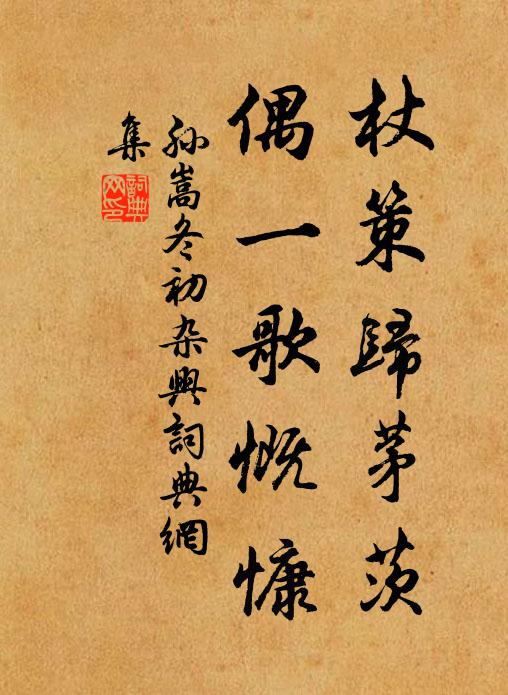 杖策歸茅茨
偶一歌慨慷
孫嵩冬初杂興詞典網
集
詞典
网印